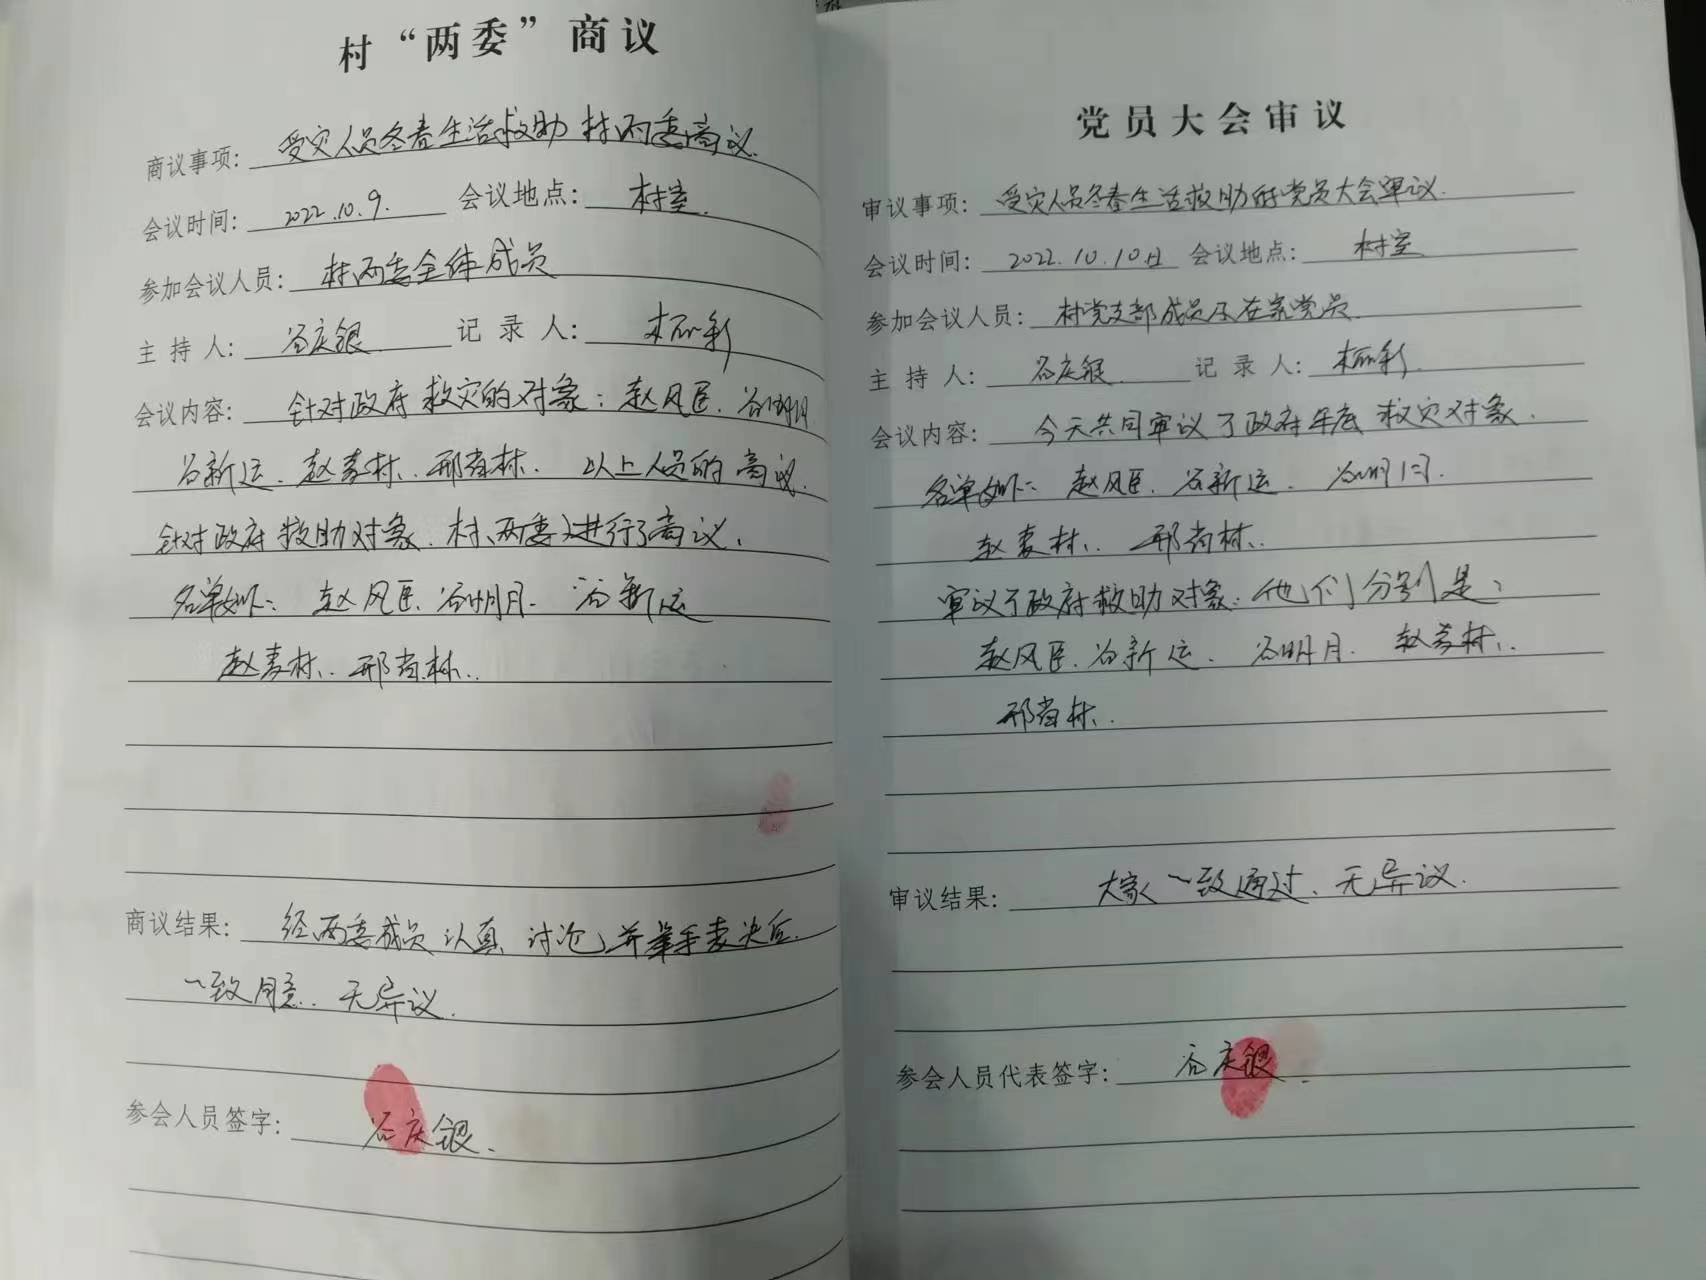 村“两委”商议
商议事项：受灾人员冬春生活救助村两委商议.
会议时间：2022.10.9. 会议地点：村室.
参加会议人员：村两委全体成员
主持人：谷庆银. 记录人：
会议内容：针对政府救灾的对象：赵风臣.谷明月
谷新运.赵麦林.邢尚林.以上人员的商议.
针对政府救助对象.村、两委进行了商议.
名单如下：赵风臣.谷明月.谷新运
赵麦林.邢尚林.
商议结果：经两委成员认真讨论,并举手表决后.
一致同意.无异议.
参会人员签字：谷庆银.
党员大会审议
审议事项：受灾人员冬春生活救助的党员大会审议.
会议时间：2022.10.10日 会议地点：村室
参加会议人员：村党支部成员及在家党员
主持人：谷庆银. 记录人：
会议内容：今天共同审议了政府年底救灾对象.
名单如下：赵风臣.谷新运.谷明月.
赵麦林.邢尚林.
审议了政府救助对象：他们分别是：
赵风臣.谷新运.谷明月.赵麦林.
邢尚林.
审议结果：大家一致通过.无异议.
参会人员代表签字：谷庆银.